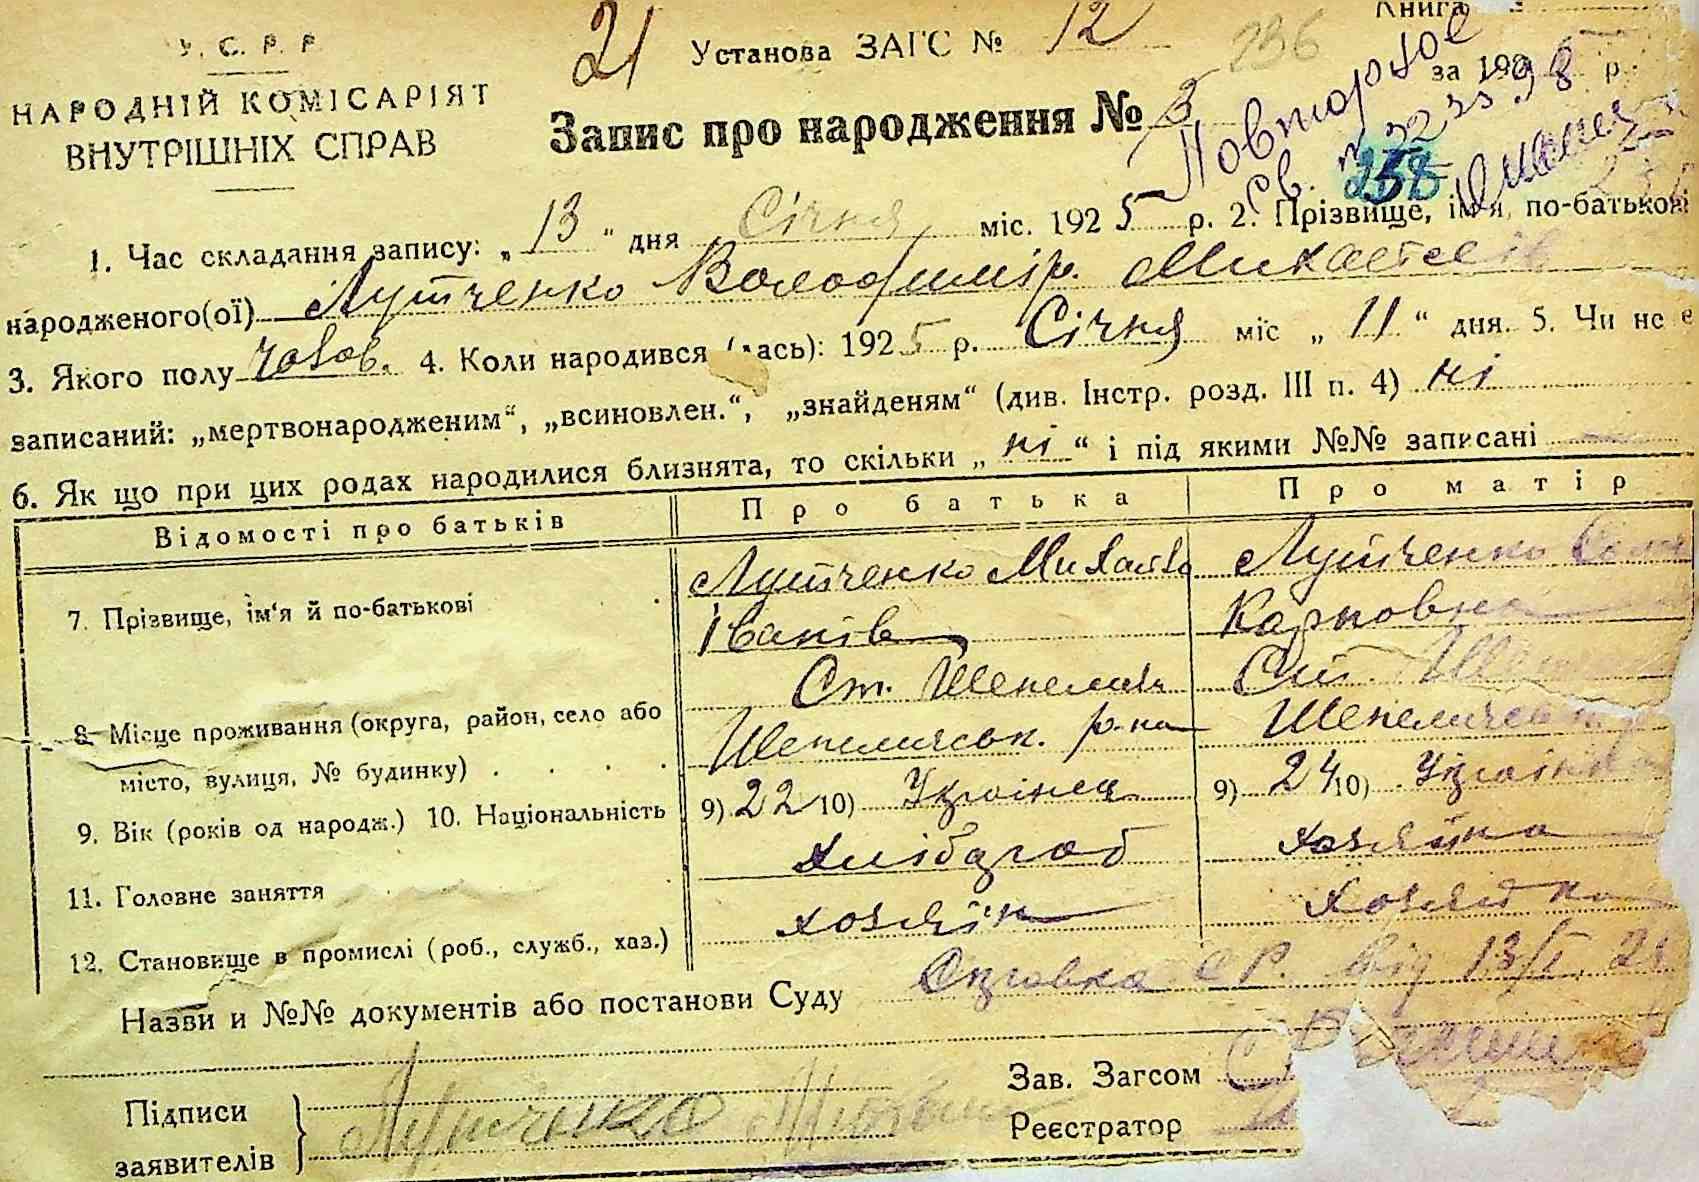 У.С.Р.Р.
НАРОДНІЙ КОМІСАРІЯТ
ВНУТРІШНІХ СПРАВ
21 Установа ЗАГС № 12 236
Книга
за 192 р.
Запис про народження № 3
Повторное
Св. 258
1. Час складання запису: „13“ дня Січня міс. 1925 р. 2. Прізвище, ім'я, по-батькові
народженого(ої) Лутченко Володимір.
3. Якого полу чолов. 4. Коли народився (лась): 1925 р. Січня міс „11“ дня. 5. Чи не є
записаний: „мертвонародженим“, „всиновлен.“, „знайденям“ (див. Інстр. розд. III п. 4) ні
6. Як що при цих родах народилися близнята, то скільки „ні“ і під якими №№ записані
Відомості про батьків Про батька Про матір
7. Прізвище, ім'я й по-батькові
Лутченко Михайло Лутченко
Іванів Карповна
8. Місце проживання (округа, район, село або
місто, вулиця, № будинку)
Ст. Шепеличи
Шепеличськ. р-на
9. Вік (років од народж.) 10. Національність 9) 22 10) Українец 9) 24 10) Українка
11. Головне заняття Хлібороб хозяйка
12. Становище в промислі (роб., служб., хаз.) хозяїн хозяйка
Назви и №№ документів або постанови Суду Справка СР. від 13/I
Підписи
заявителів
Лутченко
Зав. Загсом
Реєстратор